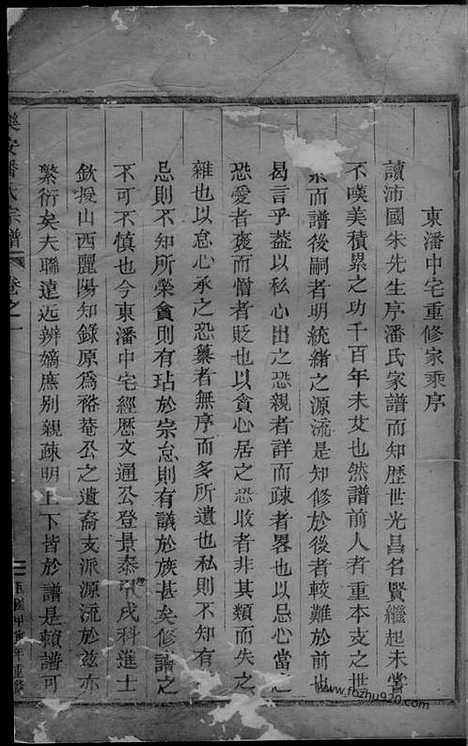 東潘中宅重修家乘序
讀沛國朱先生序潘氏家譜而知歷世光昌名賢繼起未嘗
不嘆美積累之功千百年未艾也然譜前人者重本支之世
系而譜後嗣者明統緒之源流是知修於後者較難於前也
曷言乎蓋以私心出之恐親者詳而疎者畧也以忌心當之
恐愛者褒而憎者貶也以貪心居之恐收者非其類而失之
雜也以怠心承之恐纂者無序而多所遺也私則不知有
忌則不知所榮貪則有玷於宗怠則有議於族甚矣修譜之
不可不慎也今東潘中宅經歷文通公登景泰甲戌科進士
欽授山西麗陽知錄原爲裕菴公之遺裔支派源流於兹亦
繁衍矣夫聯遠近辨嫡庶别親疎明上下皆於譜是賴譜可
樂安潘氏宗譜 卷之一
甲 年重修
www.fozhu920.com